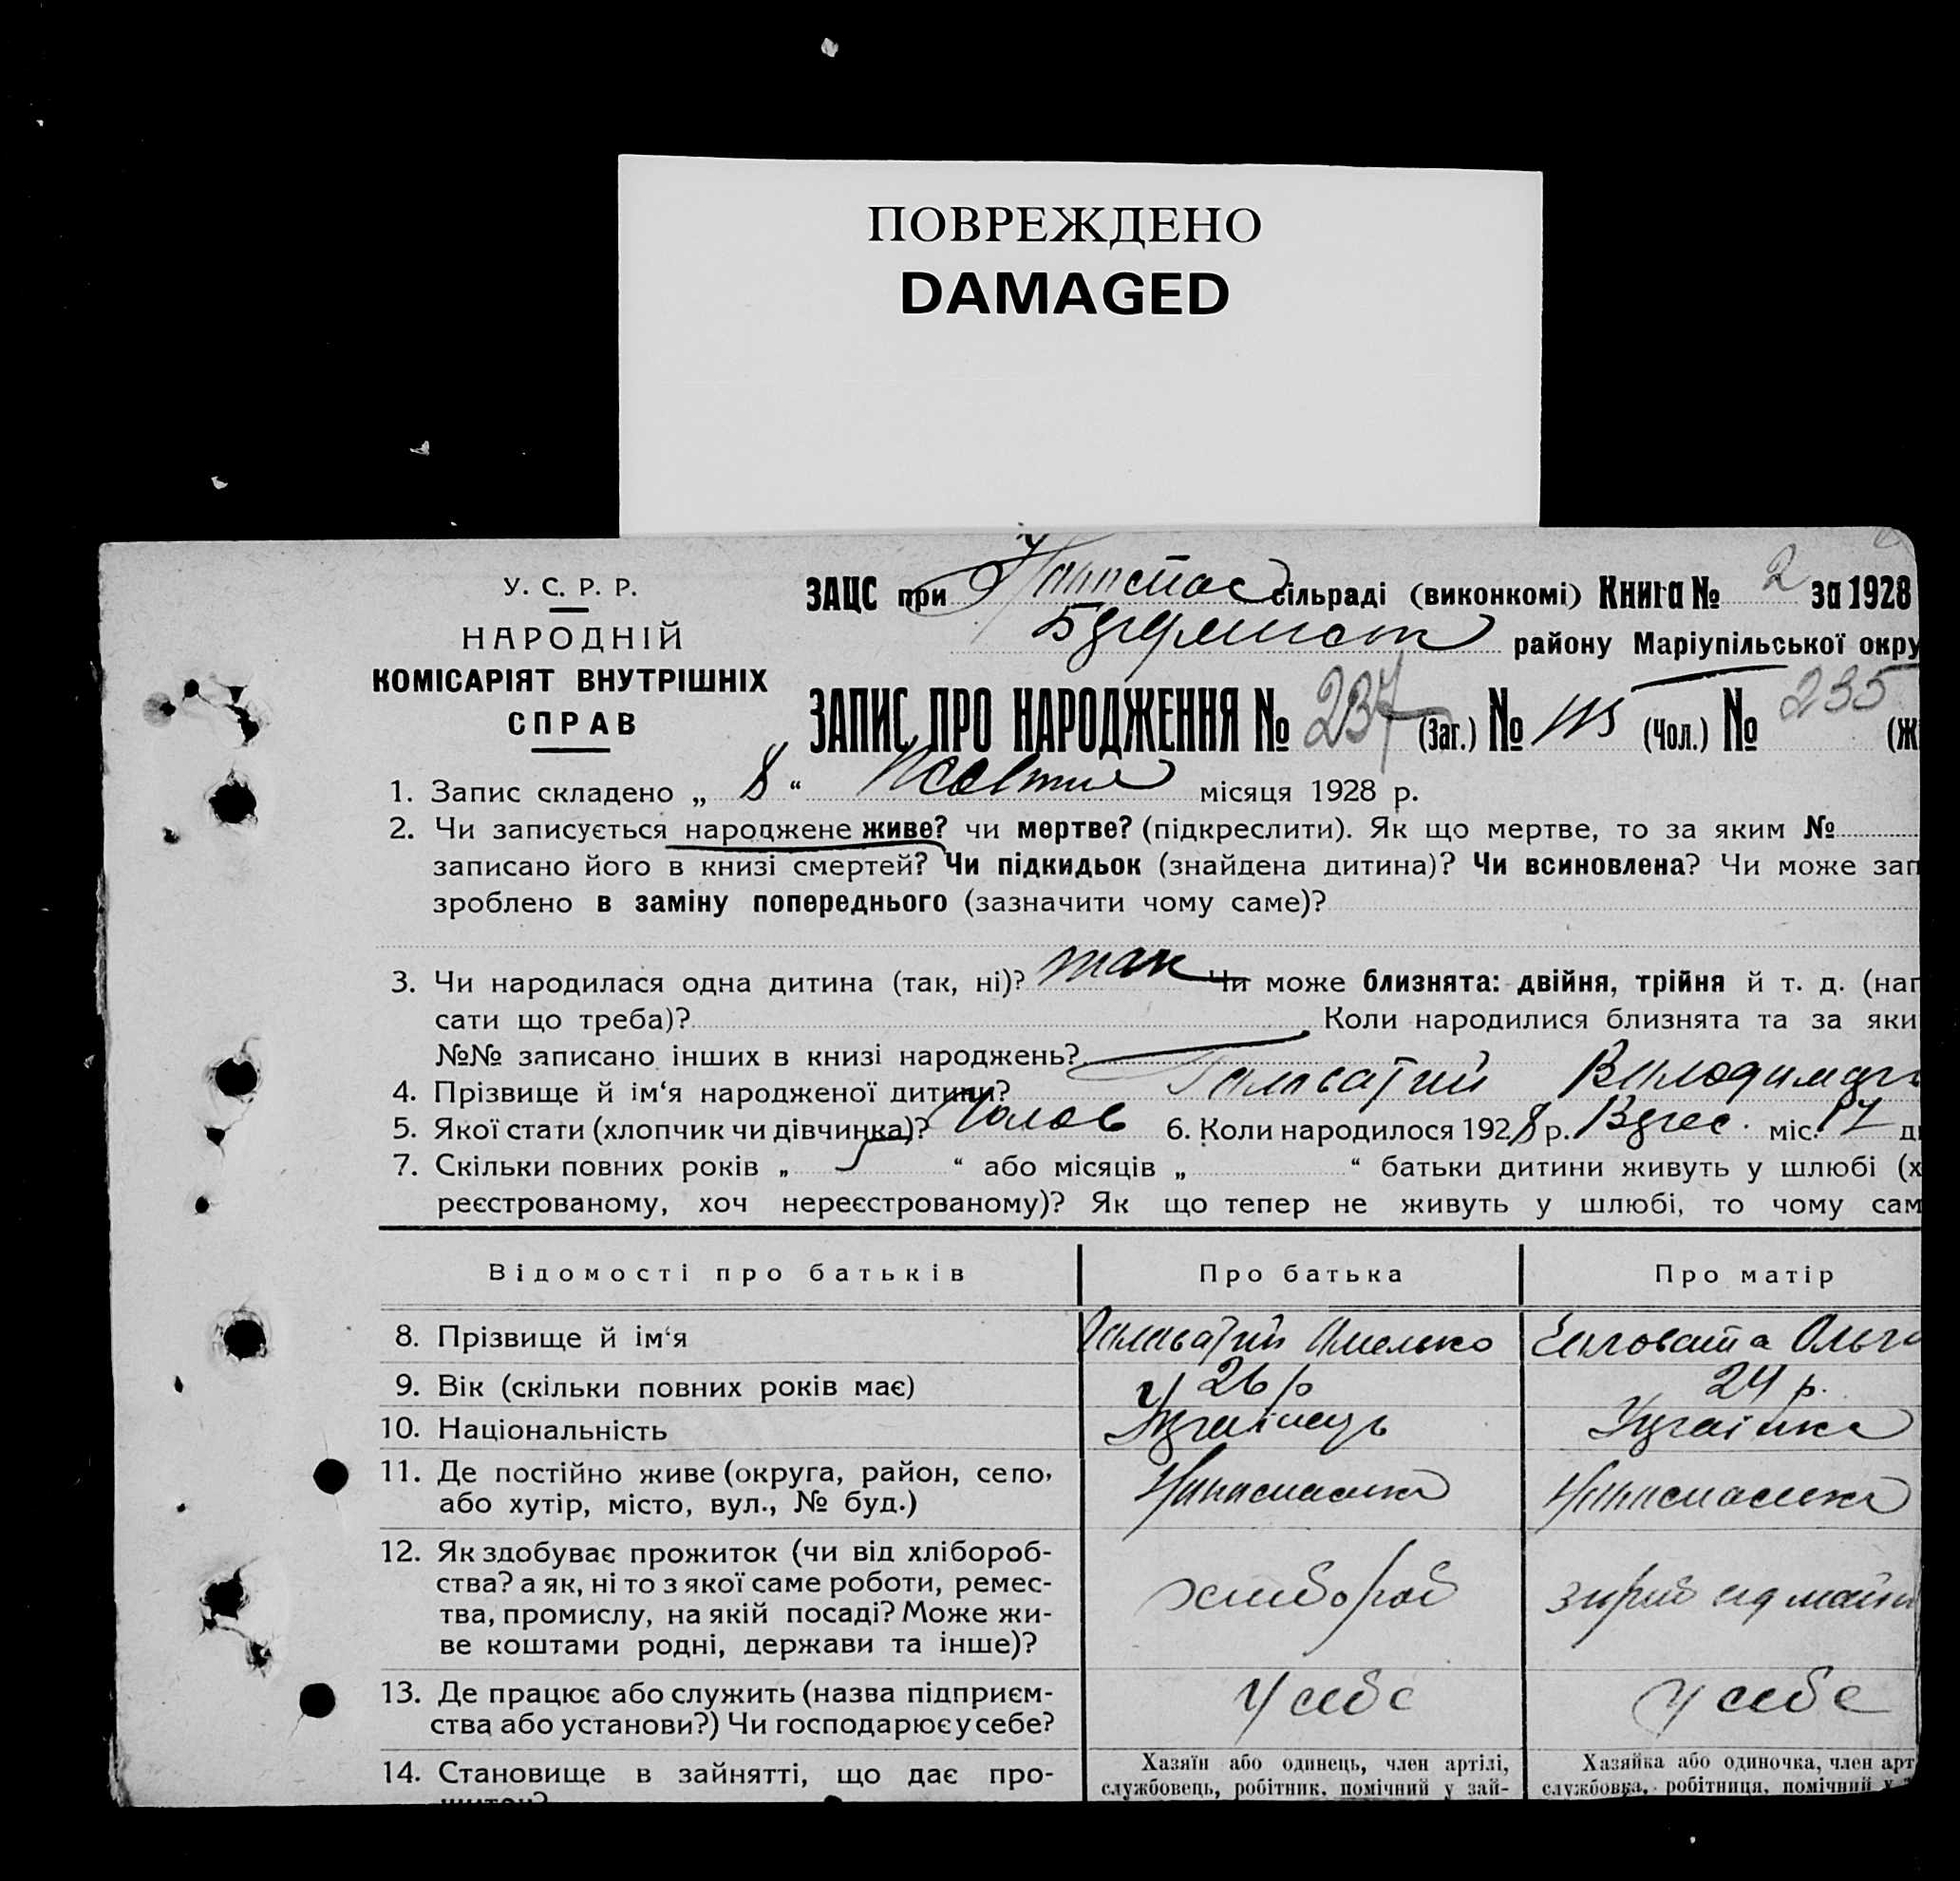 ПОВРЕЖДЕНО
DAMAGED
У. С. Р. Р.
НАРОДНІЙ
КОМІСАРІЯТ ВНУТРІШНІХ
СПРАВ
ЗАЦС при сільраді (виконкомі) Книга № 2 за 1928
району Маріупільської окру
ЗАПИС ПРО НАРОДЖЕННЯ № 237 (Заг.) № (Чол.) № 235 (Ж
1. Запис складено „ 8 “ Жовтня місяця 1928 р.
2. Чи записується народжене живе? чи мертве? (підкреслити). Як що мертве, то за яким №
записано його в книзі смертей? Чи підкидьок (знайдена дитина)? Чи всиновлена? Чи може зап
зроблено в заміну попереднього (зазначити чому саме)?
3. Чи народилася одна дитина (так, ні)? так Чи може близнята: двійня, трійня й т. д. (нап
сати що треба)? Коли народилися близнята та за яки
№№ записано інших в книзі народжень?
4. Прізвище й ім‘я народженої дитини?
5. Якої стати (хлопчик чи дівчинка)? Чолов 6. Коли народилося 1928 р. Верес. міс. 17 д
7. Скільки повних років „ 5 “ або місяців „ “ батьки дитини живуть у шлюбі (х
реєстрованому, хоч нереєстрованому)? Як що тепер не живуть у шлюбі, то чому сам
Відомості про батьків Про батька Про матір
8. Прізвище й ім‘я Омелько Ольга
9. Вік (скільки повних років має) 26 р 24 р.
10. Національність Українець Українка
11. Де постійно живе (округа, район, село,
або хутір, місто, вул., № буд.)
12. Як здобуває прожиток (чи від хлібороб-
ства? а як, ні то з якої саме роботи, ремес-
тва, промислу, на якій посаді? Може жи-
ве коштами родні, держави та інше)?
хлібороб
13. Де працює або служить (назва підприєм-
ства або установи?) Чи господарює у себе?
У себе У себе
14. Становище в зайнятті, що дає про-
житок?
Хазяїн або одинець, член артілі,
службовець, робітник, помічний у зай-
Хазяйка або одиночка, член арт
службовка, робітниця, помічний у